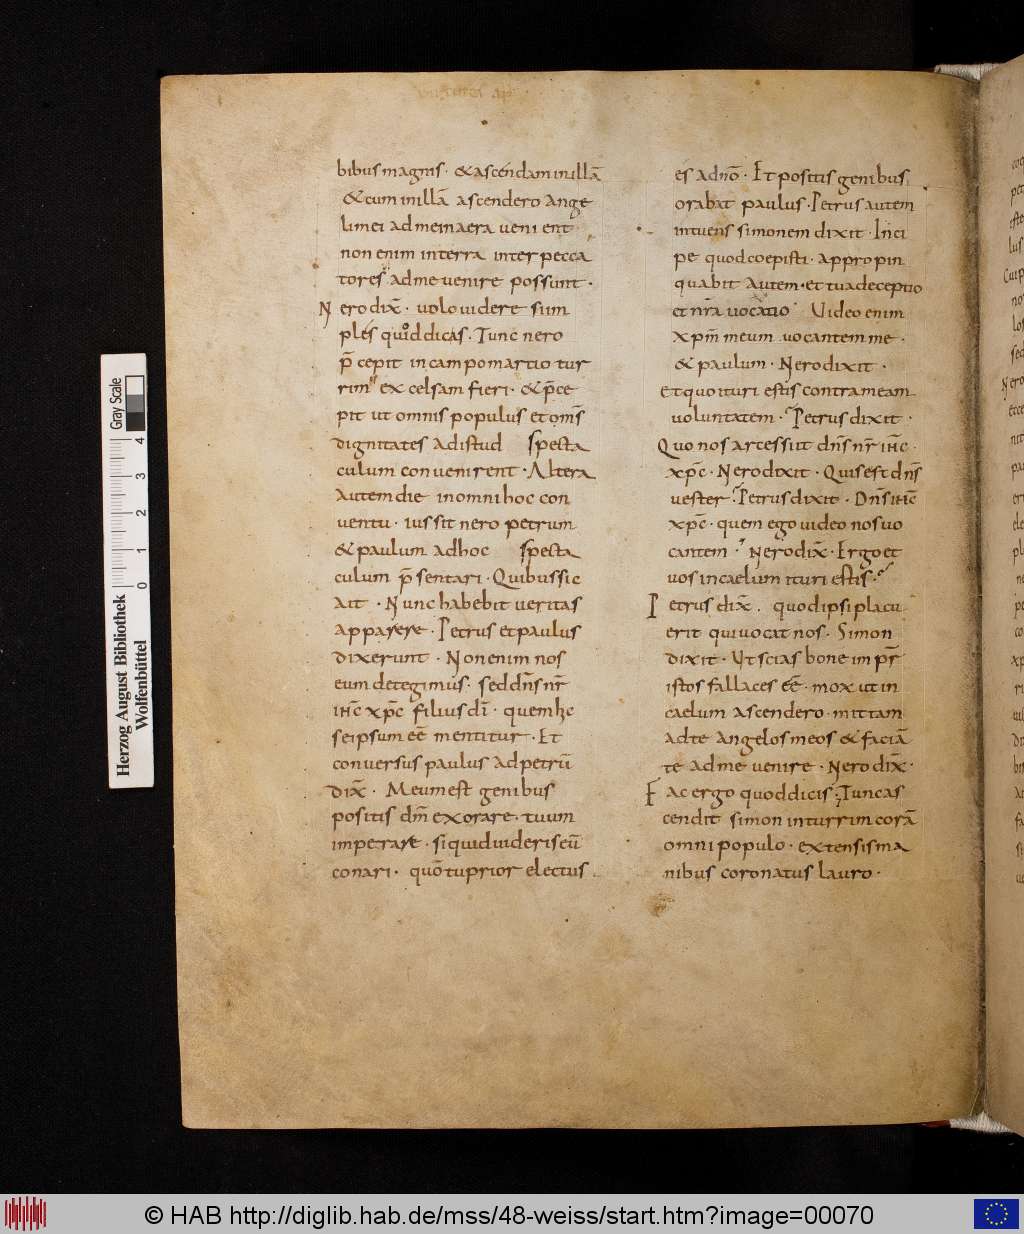 bibus magnis · & ascendam in illā
& cum in illā ascendero ange
li mei ad me in aera uenient
non enim in terra inter pecca
tores ad me uenire possunt ·
Nero dix̄ · uolo uidere si im
ples quod dicas · Tunc nero
p̄cepit in campo martio tur
rim excelsam fieri · & p̄ce
pit ut omnis populus et om̄s
dignitates ad istud specta
culum conuenirent · Altera
autem die in omni hoc con
uentu · iussit nero petrum
& paulum ad hoc specta
culum p̄sentari · Quibus sic
ait · Nunc habebit ueritas
apparere · Petrus et paulus
dixerunt · Non enim nos
eum detegimus · sed dn̄s nr̄
ihc̄ xpc̄ filius dī · quem hc
se ipsum eē mentitur · Et
conuersus paulus ad petrū
dix̄ · Meum est genibus
positis dm̄ exorare · tuum
imperare · si quid uideris eū
conari · quō tu prior electus
és a dnō · Et positis genibus
orabat paulus · Petrus autem
intuens simonem dixit · Inci
pe quod coepisti · appropin
quabit autem · et tua deceptio
et nr̄a uocatio Uideo enim
xpm̄ meum uocantem me ·
& paulum · Nero dixit ·
Et quo ituri estis contra meam
uoluntatem · Petrus dixit ·
Quo nos arcessiit dn̄s nr̄ ihc̄
xpc̄ · Nero dixit · Quis est dn̄s
uester · Petrus dixit · Dn̄s ihc̄
xpc̄ · quem ego uideo nos uo
cantem · Nero dix̄ · Ergo et
uos in caelum ituri estis ·
Petrus dix̄ · quod ipsi placu
erit qui uocat nos · Simon
dixit · Ut scias bone impr̄
istos fallaces eē · mox ut in
caelum ascendero · mittam
ad te angelos meos & faciā
te ad me uenire · Nero dix̄ ·
Fac ergo quod dicis · Tunc as
cendit simon in turrim corā
omni populo · extensis ma
nibus coronatus lauro ·
Gray Scale
0 1 2 3 4
Herzog August Bibliothek
Wolfenbüttel
© HAB http://diglib.hab.de/mss/48-weiss/start.htm?image=00070